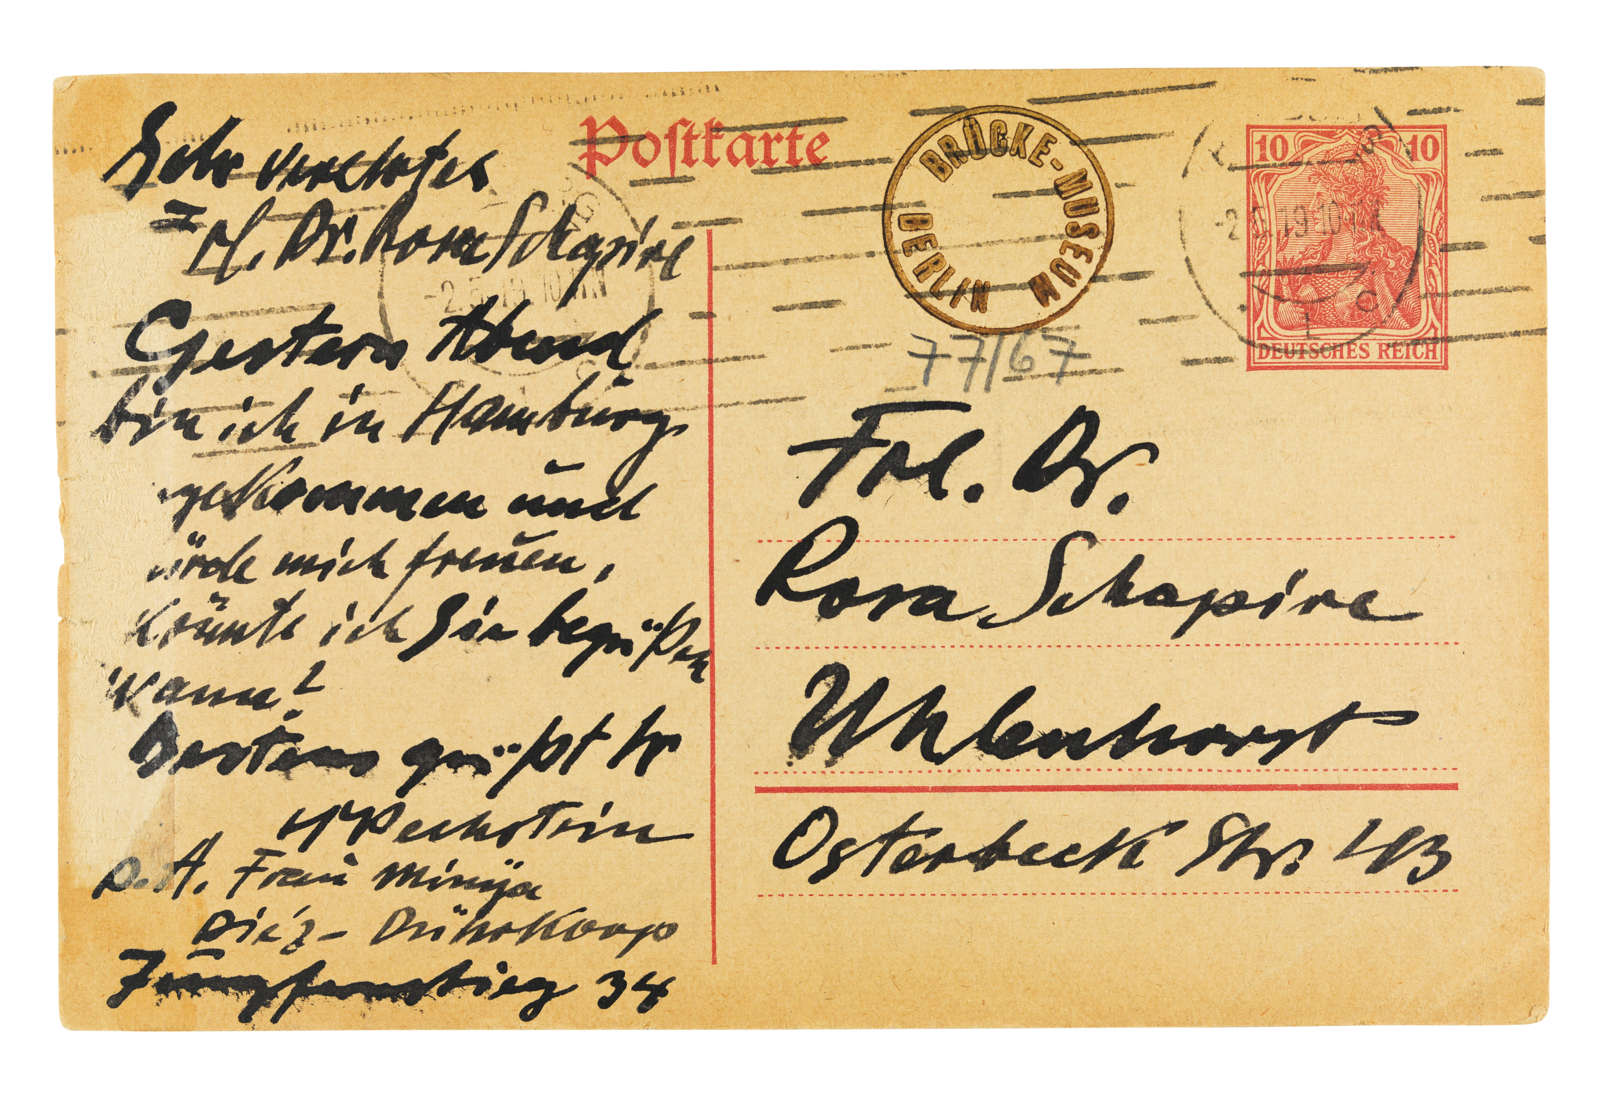 Postkarte
Sehr verehrtes
Frl. Dr. Rosa Schapire
Gestern Abend
bin ich in Hamburg
gekommen und
würde mich freuen,
könnte ich Sie begrüßen
kann?
Bestens grüßt Ihr
HMPechstein
p. A. Frau Minya
Diéz-Dührkoop
Jungfernstieg 34
BRÜCKE-MUSEUM
BERLIN
77/67
10 10
DEUTSCHES REICH
Frl. Dr.
Rosa Schapire
Uhlenhorst
Osterbeck Str. 43